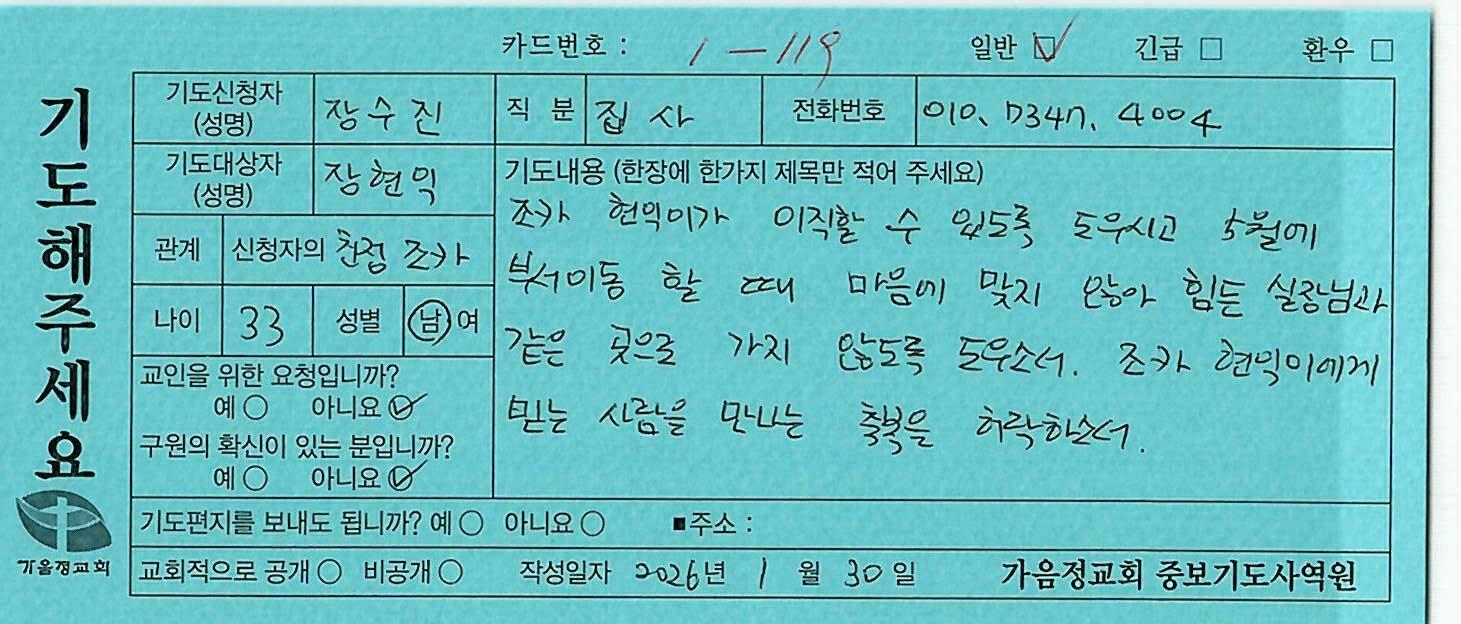 카드번호 : 1-119 일반 ☑ 긴급 □ 환우 □
기도해주세요
기도신청자 (성명) 장수진 직 분 집사 전화번호 010. 7347. 4004
기도대상자 (성명) 장현익
관계 신청자의 친정 조카
나이 33 성별 남 여
교인을 위한 요청입니까?
예 ○ 아니요 ✓
구원의 확신이 있는 분입니까?
예 ○ 아니요 ✓
기도내용 (한장에 한가지 제목만 적어 주세요)
조카 현익이가 이직할 수 있도록 도우시고 5월에
부서이동 할 때 마음에 맞지 않아 힘든 실장님과
같은 곳으로 가지 않도록 도우소서. 조카 현익이에게
믿는 사람을 만나는 축복을 허락하소서.
기도편지를 보내도 됩니까? 예 ○ 아니요 ○ ■주소 :
교회적으로 공개 ○ 비공개 ○ 작성일자 2026년 1월 30일 가음정교회 중보기도사역원
가음정교회